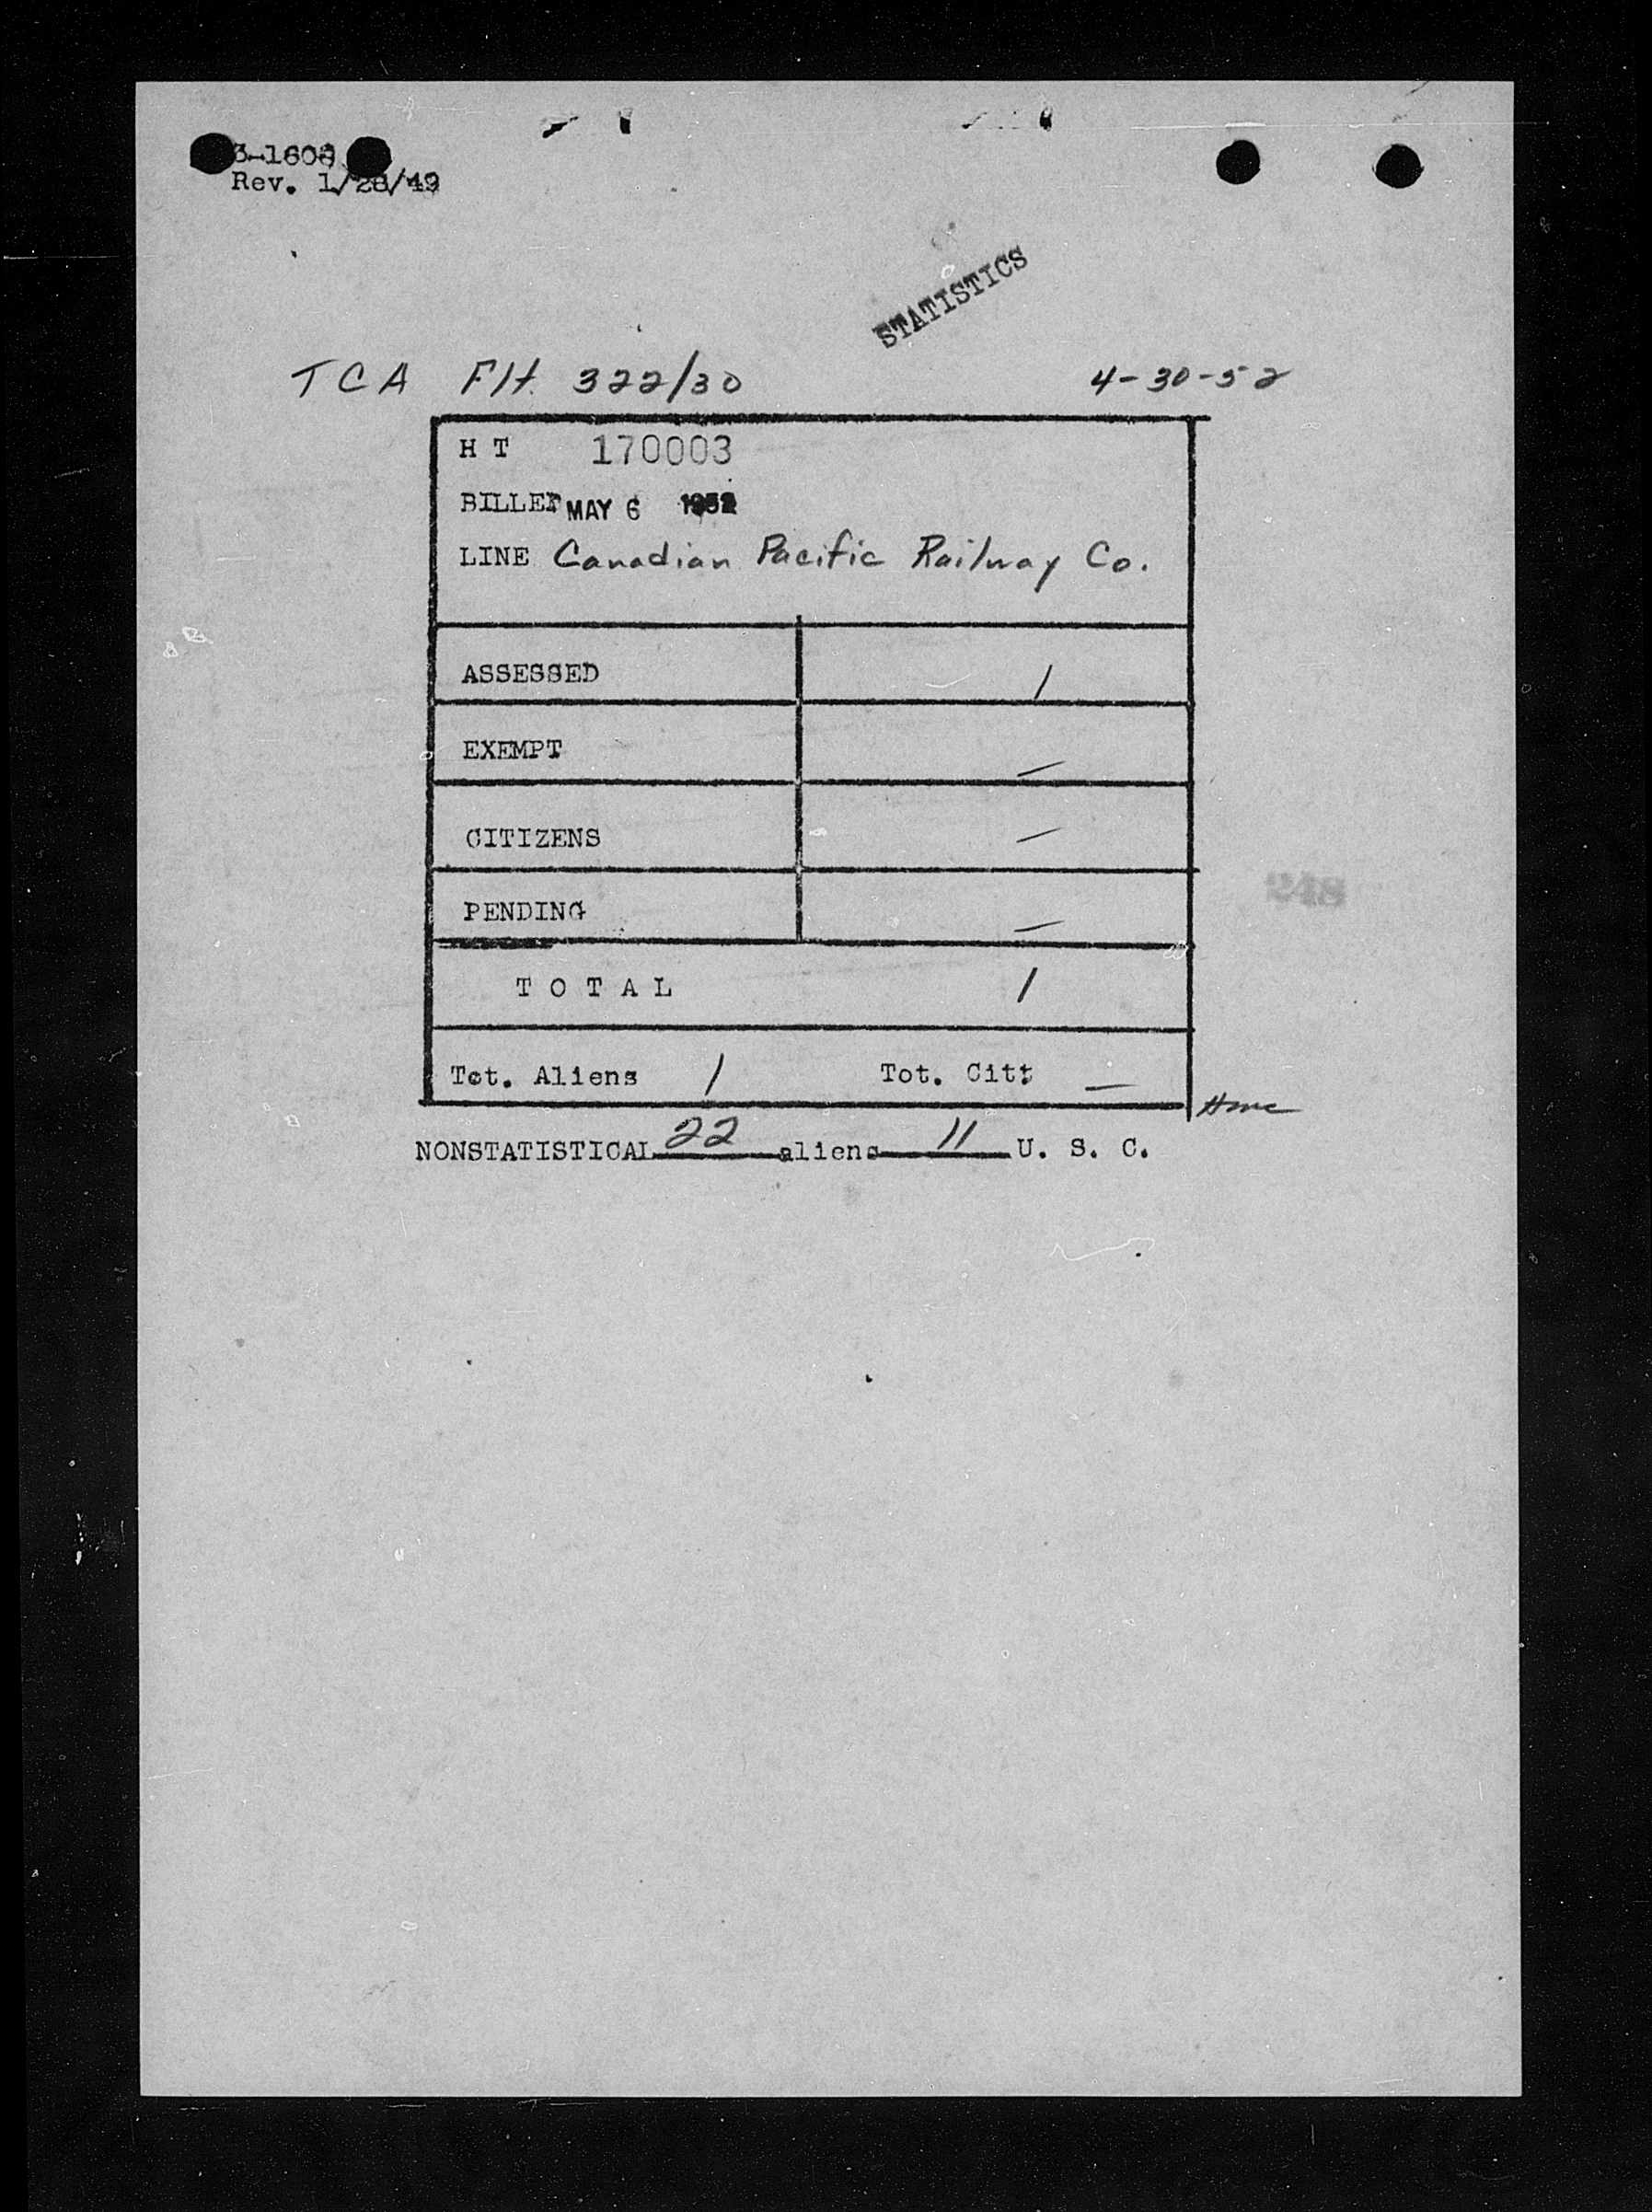 3-1608
Rev. 1/28/49
STATISTICS
TCA Flt. 322/30 4-30-52
H T 170003
BILLED MAY 6 1952
LINE Canadian Pacific Railway Co.
ASSESSED 1
EXEMPT —
CITIZENS —
PENDING —
T O T A L 1
Tot. Aliens 1 Tot. Cit: —
NONSTATISTICAL 22 aliens 11 U. S. C.
248